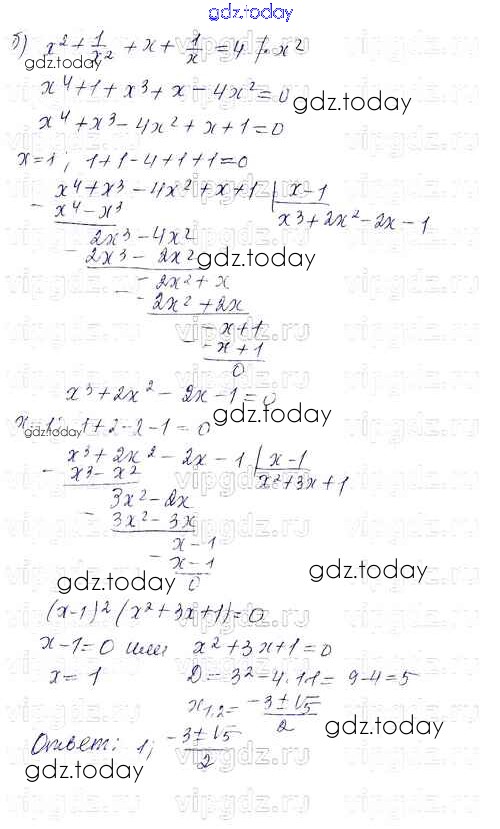 gdz.today
б) x² + 1/x² + x + 1/x = 4 |· x²
x⁴ + 1 + x³ + x − 4x² = 0
gdz.today
x⁴ + x³ − 4x² + x + 1 = 0
x = 1; 1 + 1 − 4 + 1 + 1 = 0
− x⁴ + x³ − 4x² + x + 1 | x − 1
x⁴ − x³ x³ + 2x² − 2x − 1
2x³ − 4x²
− 2x³ − 2x² gdz.today
− 2x² + x
− − 2x² + 2x
− x + 1
− − x + 1
0
x³ + 2x² − 2x − 1 = 0
gdz.today
x = 1; 1 + 2 − 2 − 1 = 0
gdz.today
x³ + 2x² − 2x − 1 | x − 1
− x³ − x² x² + 3x + 1
3x² − 2x
− 3x² − 3x
x − 1
− x − 1
0
gdz.today gdz.today
(x − 1)² (x² + 3x + 1) = 0
x − 1 = 0 или x² + 3x + 1 = 0
x = 1 D = 3² − 4·1·1 = 9 − 4 = 5
gdz.today
x₁,₂ = (−3 ± √5)/2
gdz.today
Ответ: 1; (−3 ± √5)/2
gdz.today
gdz.today
vipgdz.ru